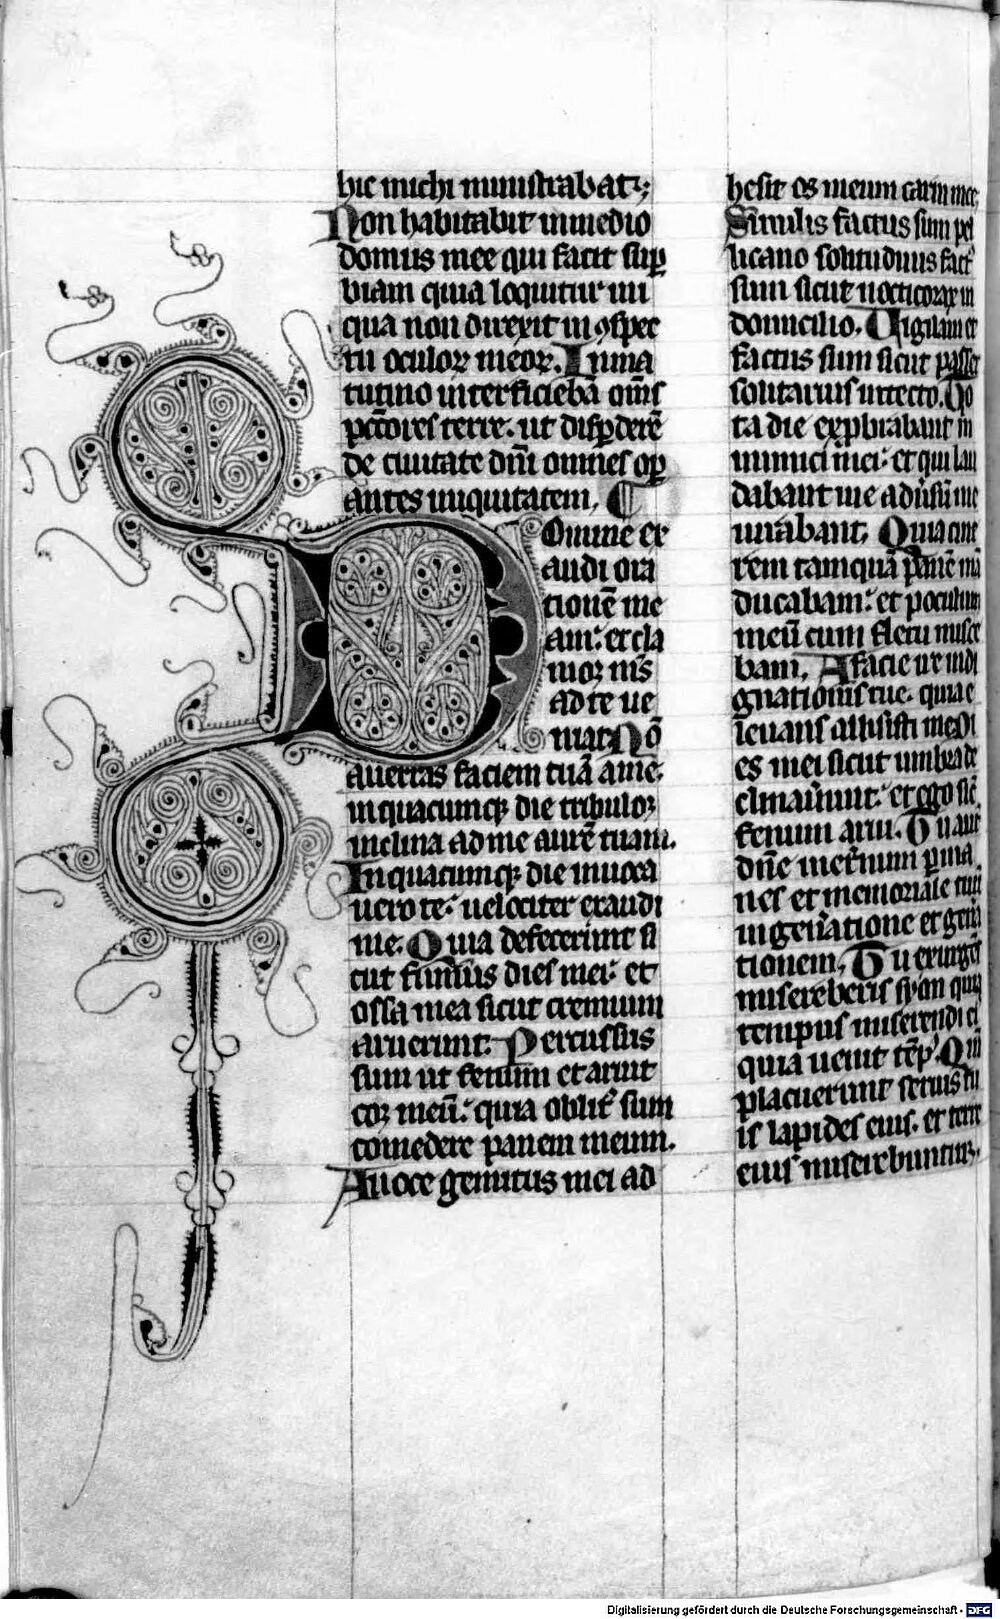 hic michi ministrabat᷑;
Non habitabit in medio
domus mee qui facit suꝑ
biam qui loquitur ini
qua non direxit in ꝯspec
tu oculoꝝ meoꝝ. In ma
tutino interficiebā om̄s
pc̄tores terre. ut disꝑderē
de ciuitate dn̄i omnes oꝑ
antes iniquitatem. ¶
Domine ex
audi ora
tionē me
am: et cla
moꝛ m̄s
ad te ue
niat Nō
auertas faciem tuā a me:
in quacumqꝫ die tribuloꝛ
inclina ad me aurē tuam.
In quacumqꝫ die inuoca
uero te: uelociter exaudi
me. Quia defecerunt si
cut fumus dies mei: et
ossa mea sicut cremium
aruerunt. Percussus
sum ut fenum et aruit
coꝛ meū: quia oblit᷒ sum
comedere panem meum.
A uoce gemitus mei ad
hesit os meum carni mee.
Similis factus sum pel
licano solitudinis fact᷒
sum sicut nocticorax in
domicilio. Uigilaui et
factus sum sicut passer
solitarius in tecto. To
ta die exprobrabant m̄
inimici mei: et qui lau
dabant me aduersū me
iurabant. Quia cine
rem tamquā panē mā
ducabam: et poculum
meū cum fletu misce
bam. A facie ire indi
gnationis tue. quia e
leuans allisisti me Di
es mei sicut umbra de
clinauerunt: et ego sic̄
fenum arui. Tu aut̄
dn̄e in et̄num ꝑma
nes et memoriale tuū
in gen̄atione et gen̄a
tionem. Tu exurgēs
misereberis syon quia
tempus miserendi ei
quia uenit tēp᷒. Qm̄
placuerunt seruis tu
is lapides eius. et terre
eius miserebuntur.
Digitalisierung gefördert durch die Deutsche Forschungsgemeinschaft - DFG